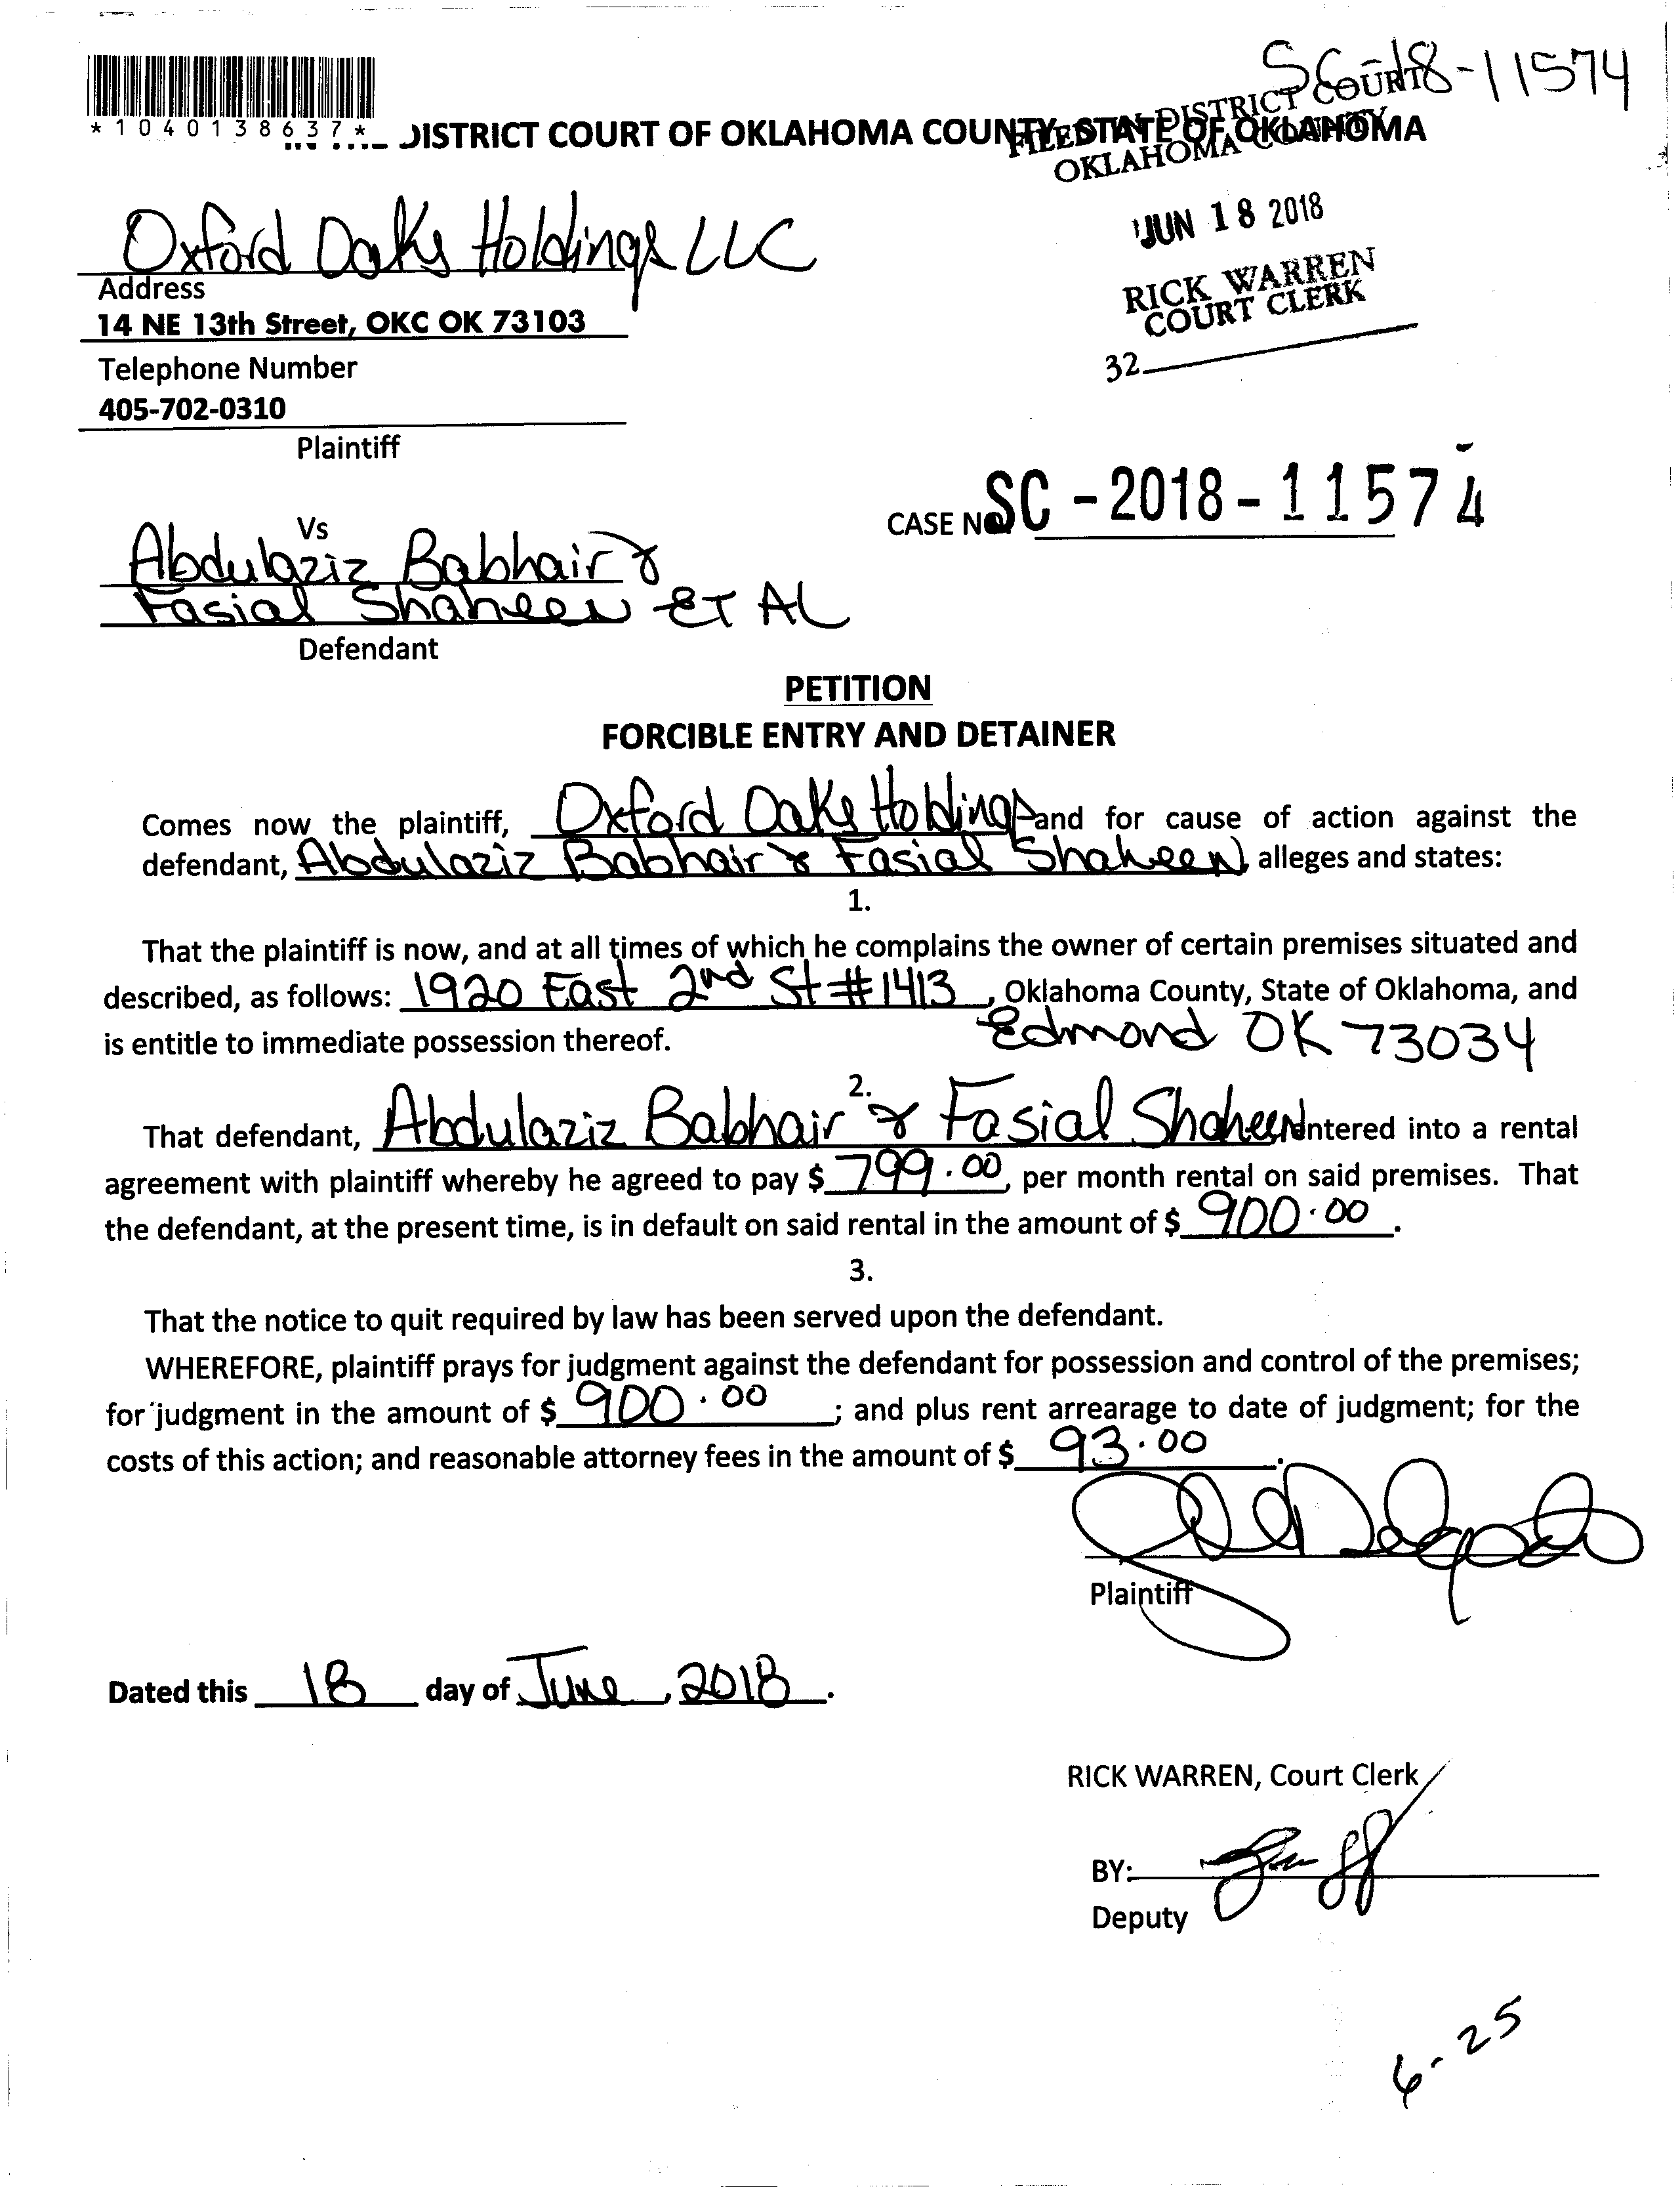 SC-18-11574
*1040138637*
DISTRICT COURT OF OKLAHOMA COUNTY, STATE OF OKLAHOMA
FILED IN DISTRICT COURT
OKLAHOMA COUNTY
JUN 18 2018
RICK WARREN
COURT CLERK
32
Oxford Oaks Holdings LLC
Address
14 NE 13th Street, OKC OK 73103
Telephone Number
405-702-0310
Plaintiff
CASE NO. SC-2018-11574
Vs
Abdulaziz Babhair &
Fasial Shaheen ET AL
Defendant
PETITION
FORCIBLE ENTRY AND DETAINER
Comes now the plaintiff, Oxford Oaks Holdings and for cause of action against the
defendant, Abdulaziz Babhair & Fasial Shaheen alleges and states:
1.
That the plaintiff is now, and at all times of which he complains the owner of certain premises situated and
described, as follows: 1920 East 2nd St #1413, Oklahoma County, State of Oklahoma, and
is entitle to immediate possession thereof. Edmond OK 73034
2.
That defendant, Abdulaziz Babhair & Fasial Shaheen entered into a rental
agreement with plaintiff whereby he agreed to pay $ 799.00, per month rental on said premises. That
the defendant, at the present time, is in default on said rental in the amount of $ 900.00.
3.
That the notice to quit required by law has been served upon the defendant.
WHEREFORE, plaintiff prays for judgment against the defendant for possession and control of the premises;
for judgment in the amount of $ 900.00; and plus rent arrearage to date of judgment; for the
costs of this action; and reasonable attorney fees in the amount of $ 93.00.
Plaintiff
Dated this 18 day of June, 2018.
RICK WARREN, Court Clerk
BY:
Deputy
6-25